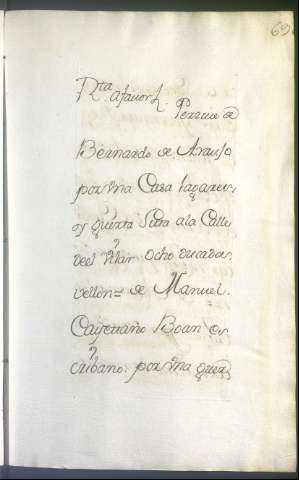 69
Rta
afavor L. Perxiia @
Bernardo de Arauso
por vna Casa lagares
os y quérta Sitta ala Calle
deel Pilar ocho ducados
vellon= de Manuel
Cayettano Boan es
cribano: por vna quer